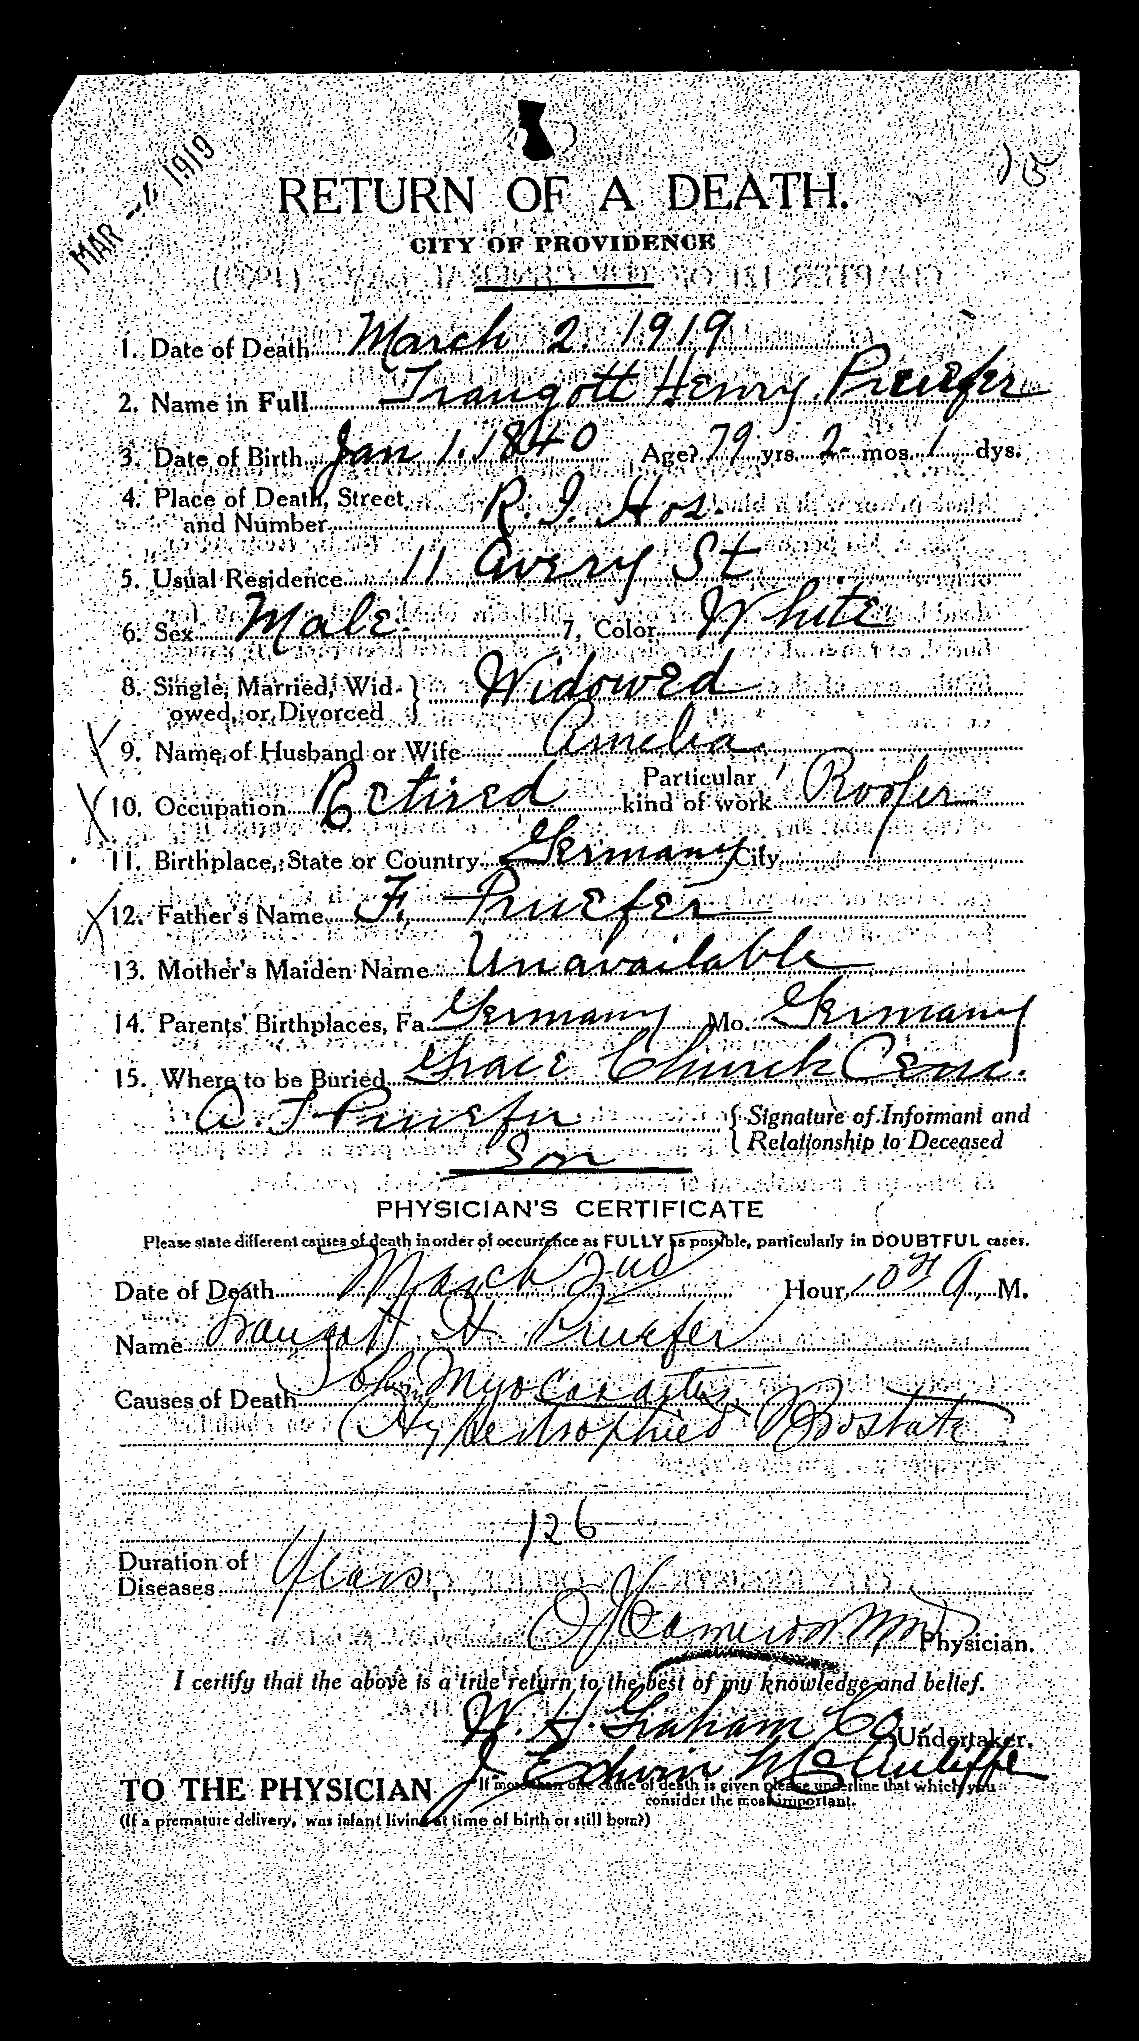 MAR 1919
RETURN OF A DEATH.
CITY OF PROVIDENCE
1. Date of Death March 2. 1919
2. Name in Full Traugott Henry Pruefer
3. Date of Birth Jan 1. 1840 Age? 79 yrs. 2 mos. 1 dys.
4. Place of Death, Street
and Number R. I. Hos.
5. Usual Residence 11 Avery St
6. Sex Male 7, Color White
8. Single, Married, Wid-
owed, or Divorced Widowed
9. Name of Husband or Wife Amelia.
10. Occupation Retired Particular kind of work Roofer
11. Birthplace, State or Country Germany City
12. Father's Name F. Pruefer
13. Mother's Maiden Name Unavailable
14. Parents' Birthplaces, Fa. Germany Mo. Germany
15. Where to be Buried Grace Church Cem.
A. T. Pruefer Signature of Informant and
Son Relationship to Deceased
PHYSICIAN'S CERTIFICATE
Please state different causes of death in order of occurrence as FULLY as possible, particularly in DOUBTFUL cases.
Date of Death March 2nd Hour, A. M.
Name Traugott H Pruefer
Causes of Death Myocarditis
Hypertrophied Prostate
126
Duration of
Diseases Years
Cameron MD Physician.
I certify that the above is a true return to the best of my knowledge and belief.
W. H. Graham Co Undertaker.
J. Edwin McAuliffe
TO THE PHYSICIAN If more than one cause of death is given please underline that which you
consider the most important.
(If a premature delivery, was infant living at time of birth or still born?)